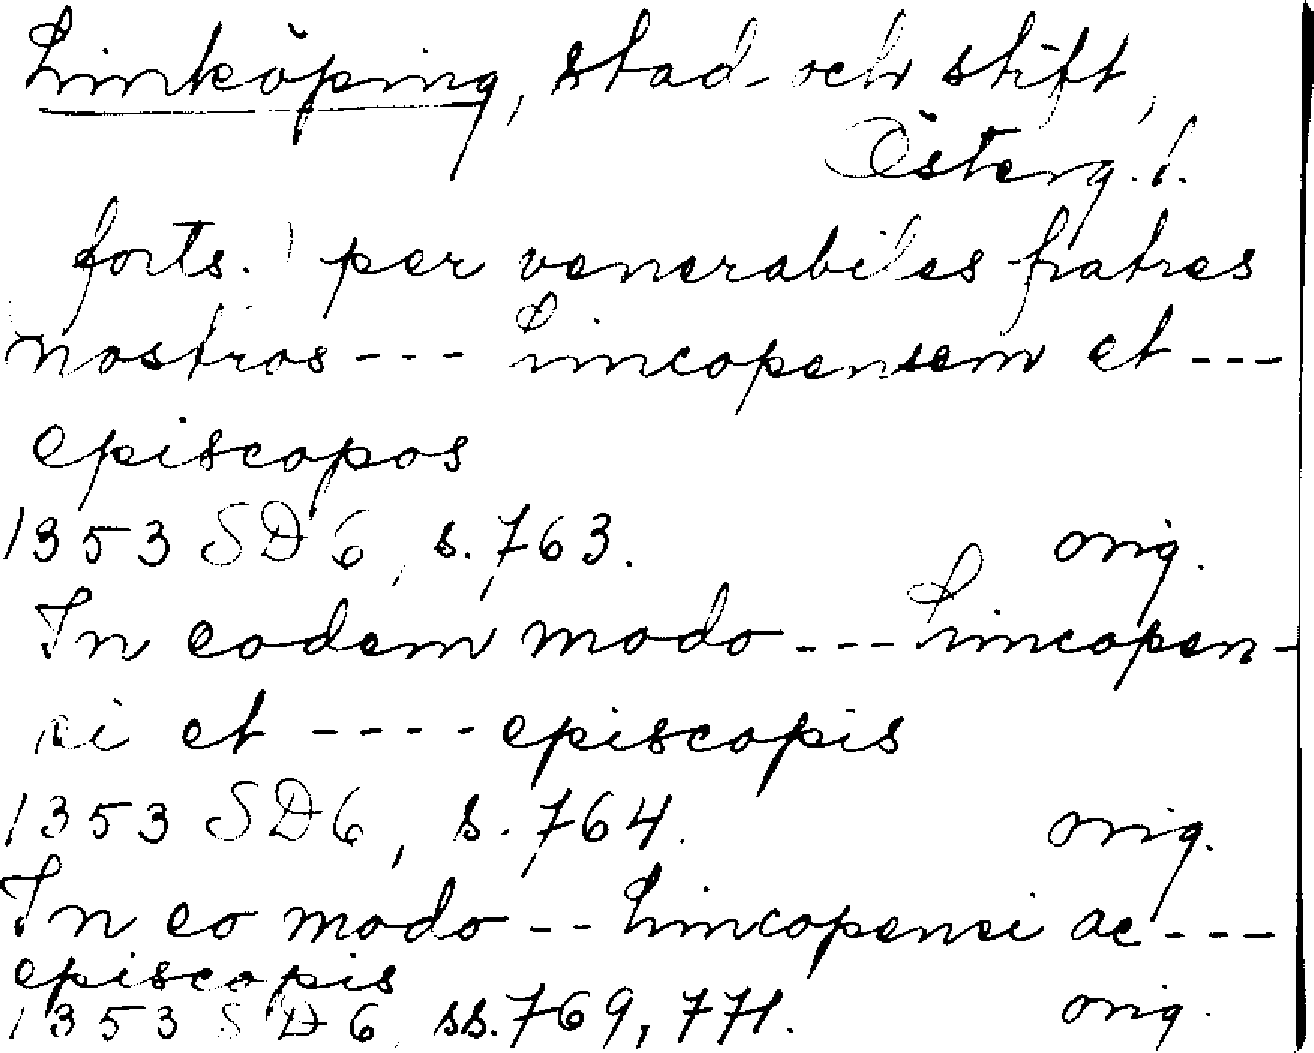 Linköping, stad och stift,
Österg.l.
forts. per venerabiles fratres
nostros --- Lincopensem et ---
episcopos
1353 SD 6, s. 763. orig.
In eodem modo --- Lincopen-
si et ---- episcopis
1353 SD 6, s. 764. orig.
In eo modo -- Lincopensi ac ---
episcopis
1353 SD 6, ss. 769, 771. orig.